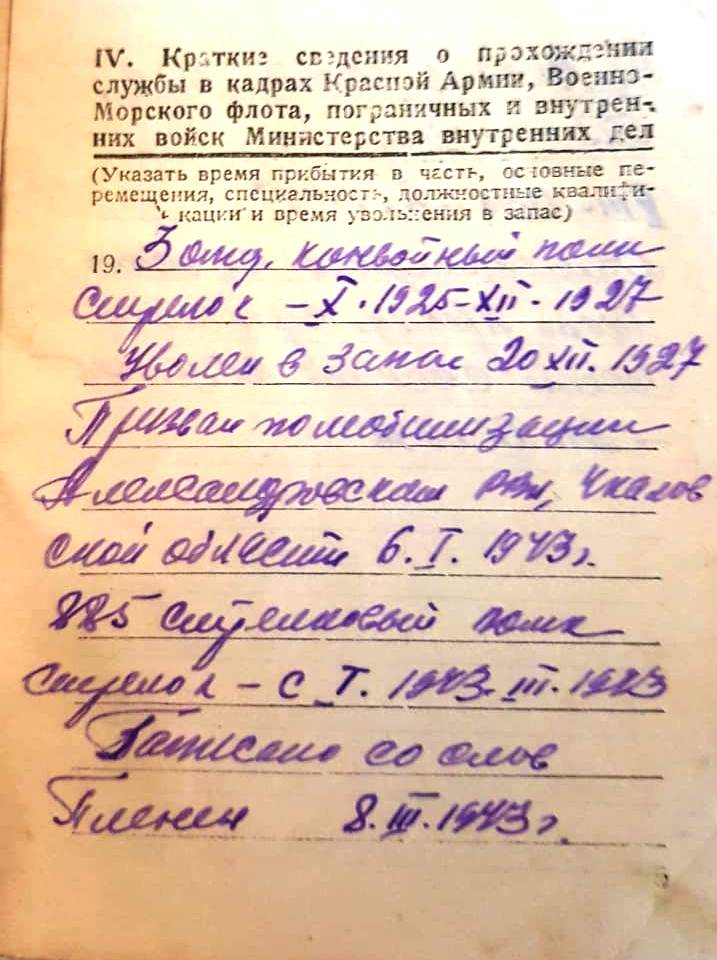 IV. Краткие сведения о прохождении
службы в кадрах Красной Армии, Военно-
Морского флота, пограничных и внутрен-
них войск Министерства внутренних дел
(Указать время прибытия в часть, основные пе-
ремещения, специальность, должностные квалифи-
кации и время увольнения в запас)
19. 3 отд. конвойный полк
Стрелок – X. 1925–XII. 1927
Уволен в запас 20 XII. 1927
Призван по мобилизации
Александровским РВК, Чкалов
ской области 6. I. 1943 г.
885 стрелковый полк
Стрелок – с I. 1943. III. 1943
Записано со слов
Пленен 8. III. 1943 г.